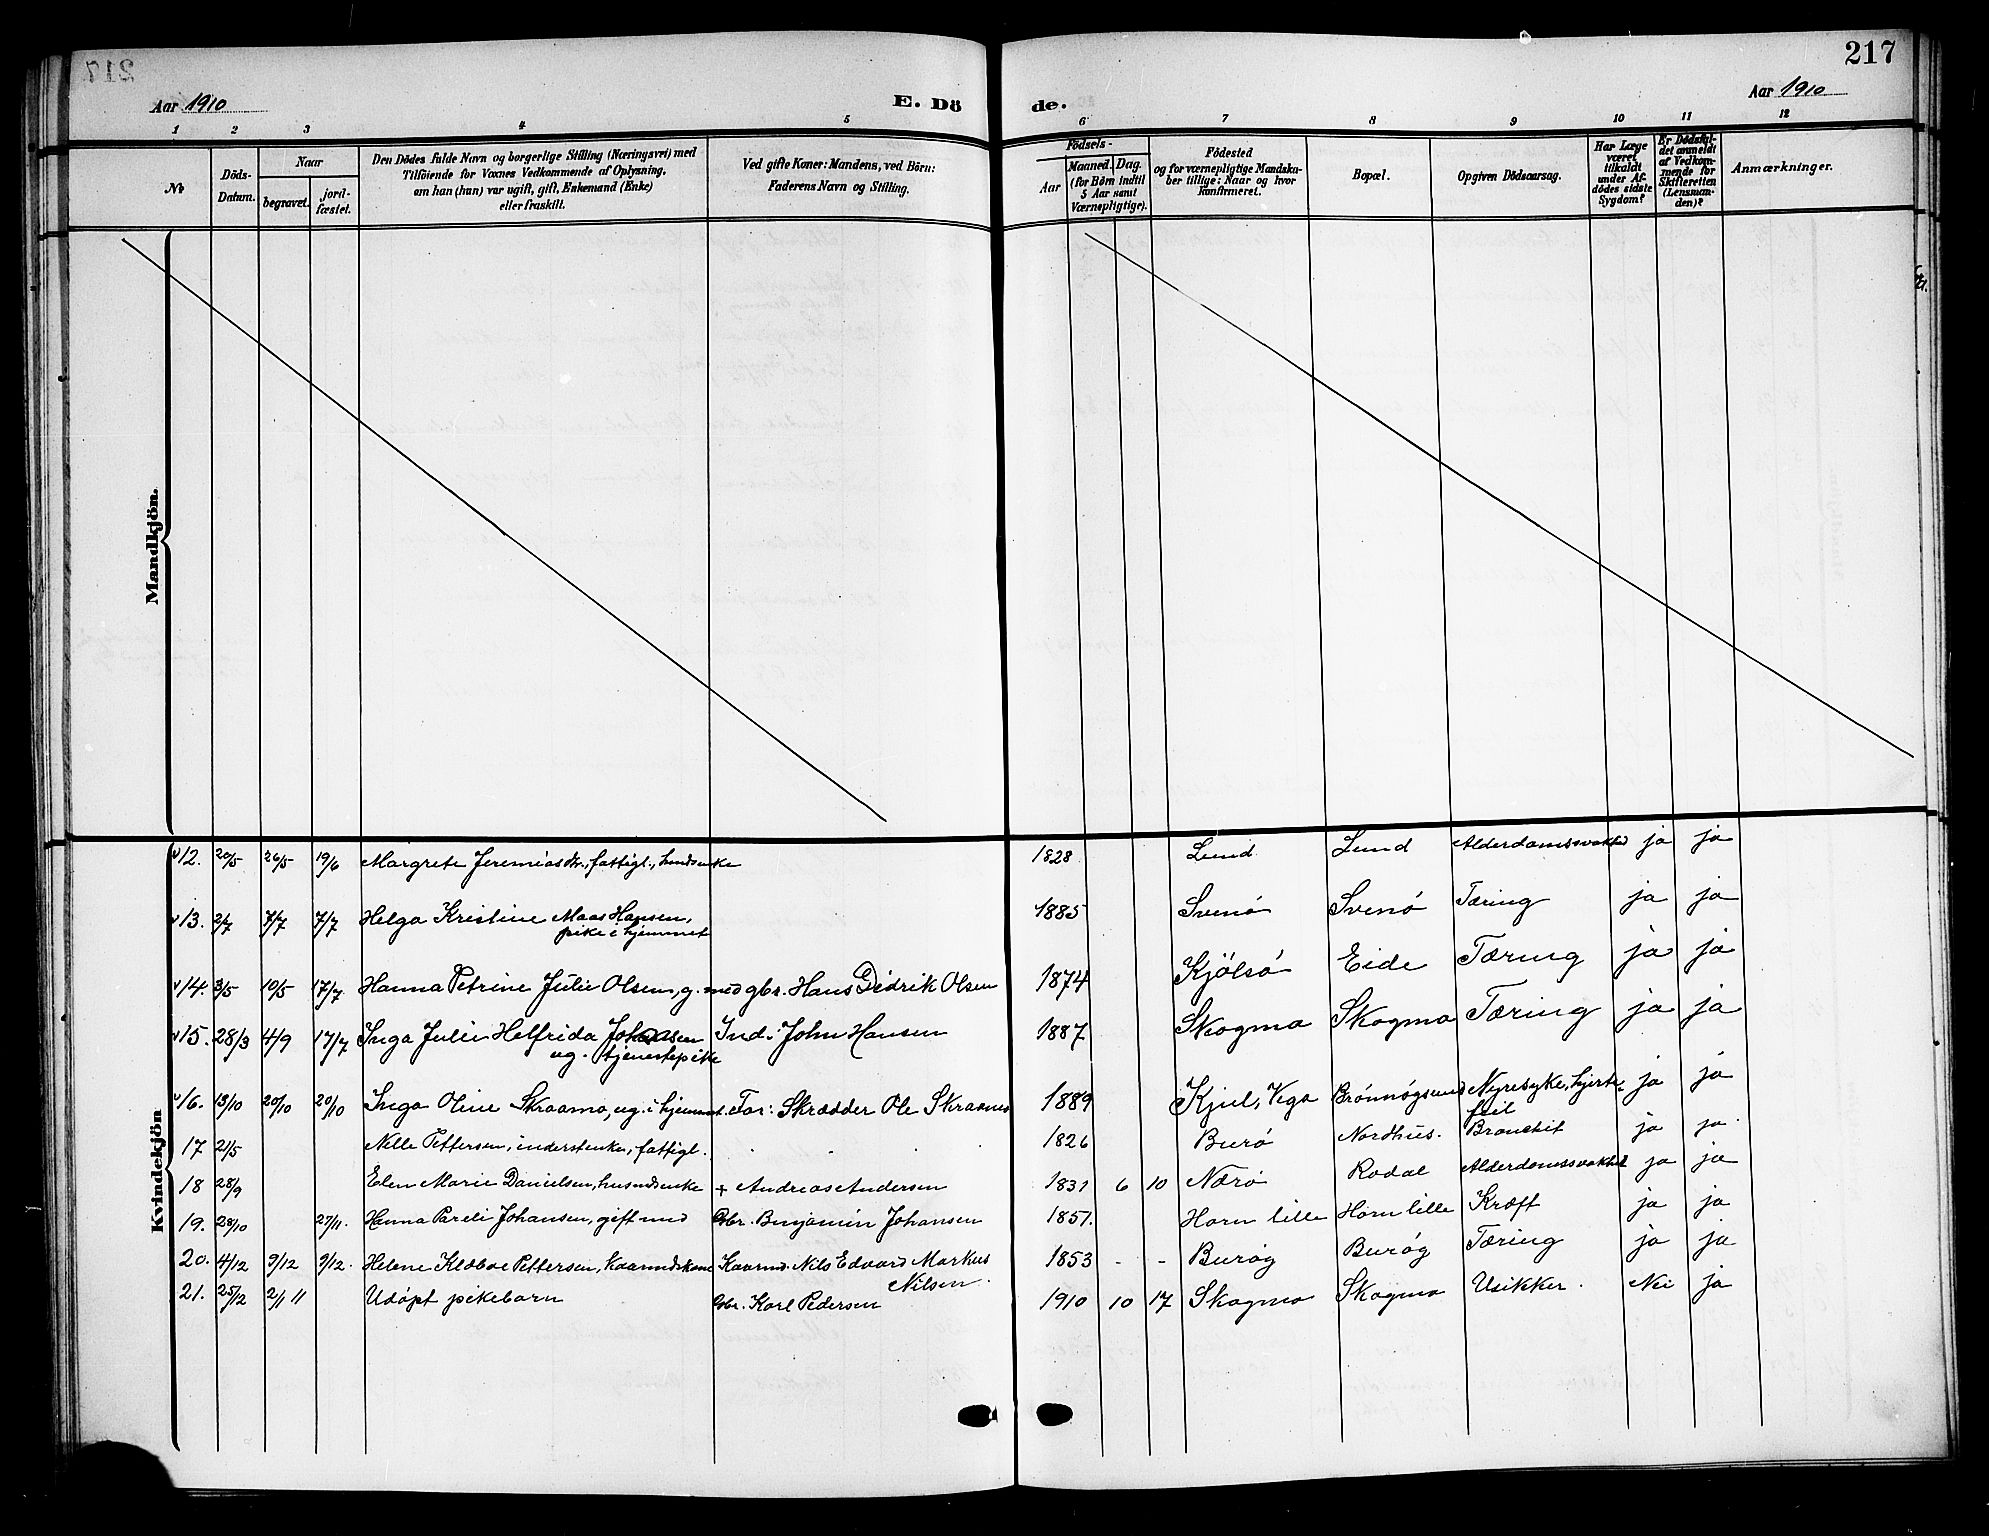 217
Aar 1910
E. Dö
de.
Aar 1910
1 2 3 4 5 6 7 8 9 10 11 12
No
Döds-
Datum.
Naar
begravet.
jord-
fæstet.
Den Dödes fulde Navn og borgerlige Stilling (Næringsvei) med
Tilföiende for Voxnes Vedkommende af Oplysning,
om han (hun) var ugift, gift, Enkemand (Enke)
eller fraskilt.
Ved gifte Koner: Mandens, ved Börn:
Faderens Navn og Stilling.
Födsels-
Aar
Maaned. Dag.
(for Børn indtil
5 Aar samt
Værnepligtige).
Födested
og for værnepligtige Mandska-
ber tillige: Naar og hvor
konfirmeret.
Bopæl.
Opgiven Dödsaarsag.
Har Læge
været
tilkaldt
under Af-
dödes sidste
Sygdom?
Er Dödsfal-
det anmeldt
af Vedkom-
mende for
Skifteretten
(Lensman-
den)?
Anmærkninger.
Mandkjön.
Kvindekjön
12. 20/5 26/5 19/6 Margrete Jeremiasdtr., fattigl., husenke 1828 Lund Lund Alderdomssvakhed ja ja
13. 2/7 7/7 7/7 Helga Kristine Maas Hansen, 1885 Svenö Svenö Tæring ja ja
pike i hjemmet
14. 3/5 10/5 17/7 Hanna Petrine Julie Olsen, g. med gbr. Hans Didrik Olsen 1874 Kjölsö Eide Tæring ja ja
15. 28/3 4/9 17/7 Inga Julie Helfrida Johansen Ind: John Hansen 1887 Skogmo Skogmo Tæring ja ja
ug. tjenestepike
16. 13/10 20/10 20/10 Inga Oline Skraamo, ug. i hjemmet. Far: Skrædder Ole Skraamo 1889 Kjul, Vega Brönnögsund Nyresyke, hjerte- ja ja
feil
17 21/5 Nelle Pettersen, inderstenke, fattigl. 1826 Burö Nordhus. Bronchit ja ja.
18 28/9 Elen Marie Danielsen, husmdsenke + Andreas Andersen 1831 6 10 Nærö Rodal Alderdomssvakhet ja ja
19. 28/10 27/11. Hanna Pareli Johansen, gift med Gbr. Benjamin Johansen 1851. Horn lille Horn lille Kræft ja ja
20. 4/12 9/12 9/12. Helene Klæboe Pettersen, Kaarmdskone Kaarmd. Nils Edvard Markus 1853 - - Burög Burög Tæring ja ja
Nilsen.
21. 25/12 2/1 11 Udöpt pikebarn Gbr. Karl Pedersen 1910 10 17 Skogmo Skogmo Usikker. Nei ja